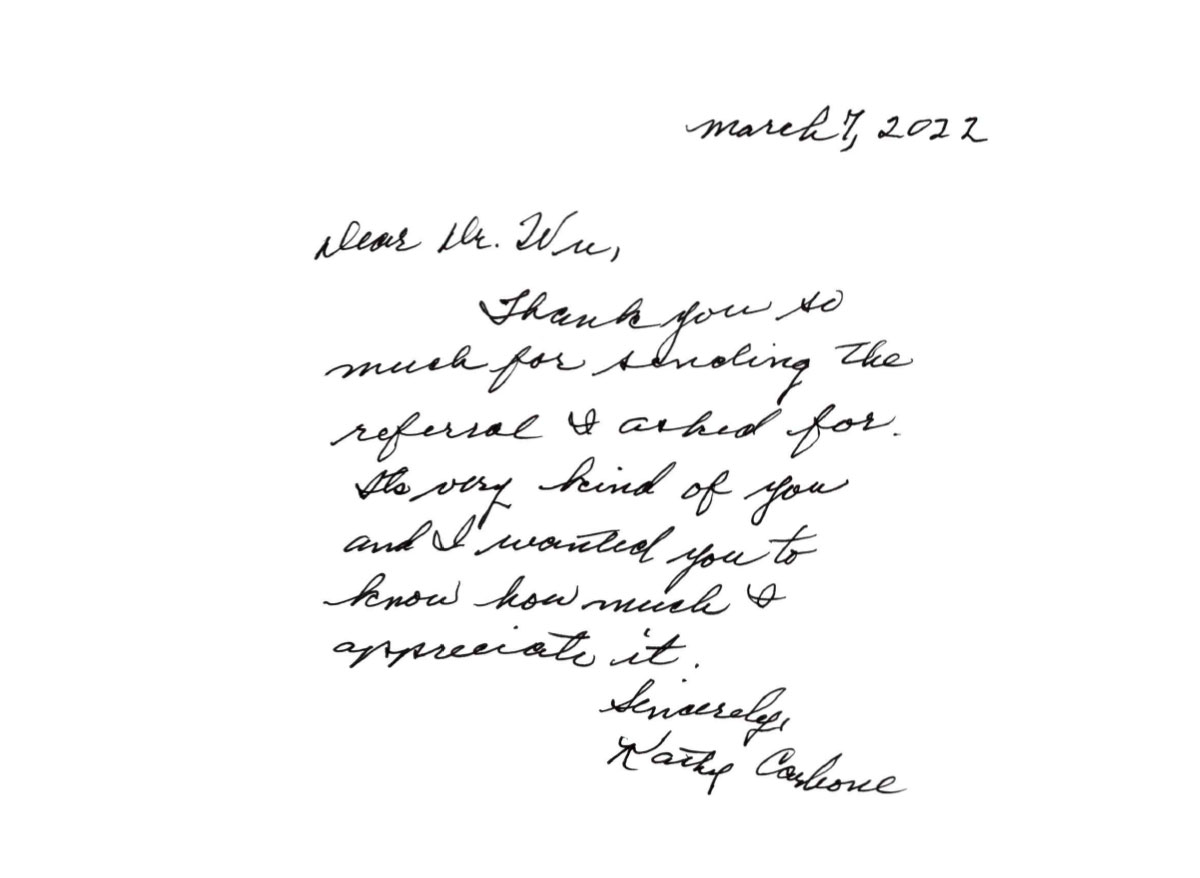 March 7, 2022
Dear Dr. Wu,
Thank you so
much for sending the
referral I asked for.
It's very kind of you
and I wanted you to
know how much I
appreciate it.
Sincerely,
Kathy Carbone